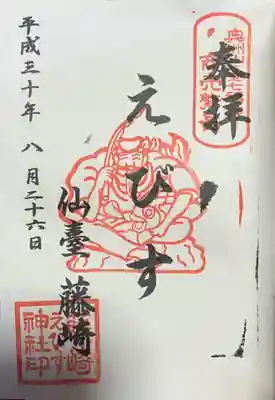 奉拝
えびす
仙臺 藤崎
平成三十年 八月二十六日
藤崎
えびす
神社印